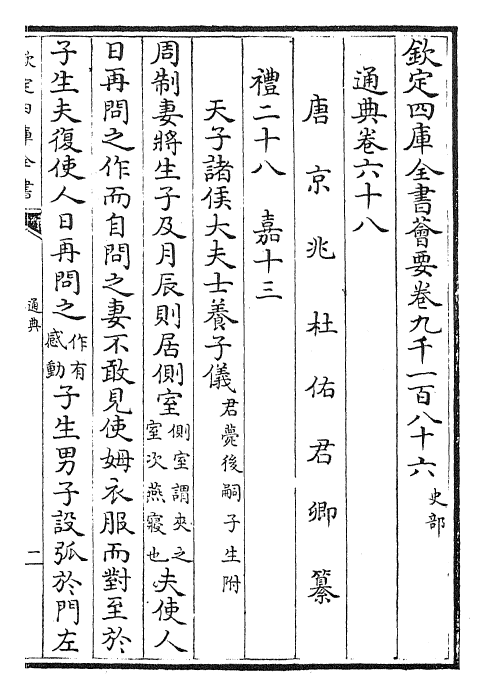 欽定四庫全書薈要卷九千一百八十六 史部
通典卷六十八
唐京兆杜佑君卿纂
禮二十八 嘉十三
天子諸侯大夫士養子儀 君薨後嗣子生附
周制妻將生子及月辰則居側室 側室謂夾之室次燕寢也 夫使人
日再問之作而自問之妻不敢見使姆衣服而對至於
子生夫復使人日再問之 作有感動 子生男子設弧於門左
欽定四庫全書 通典 一